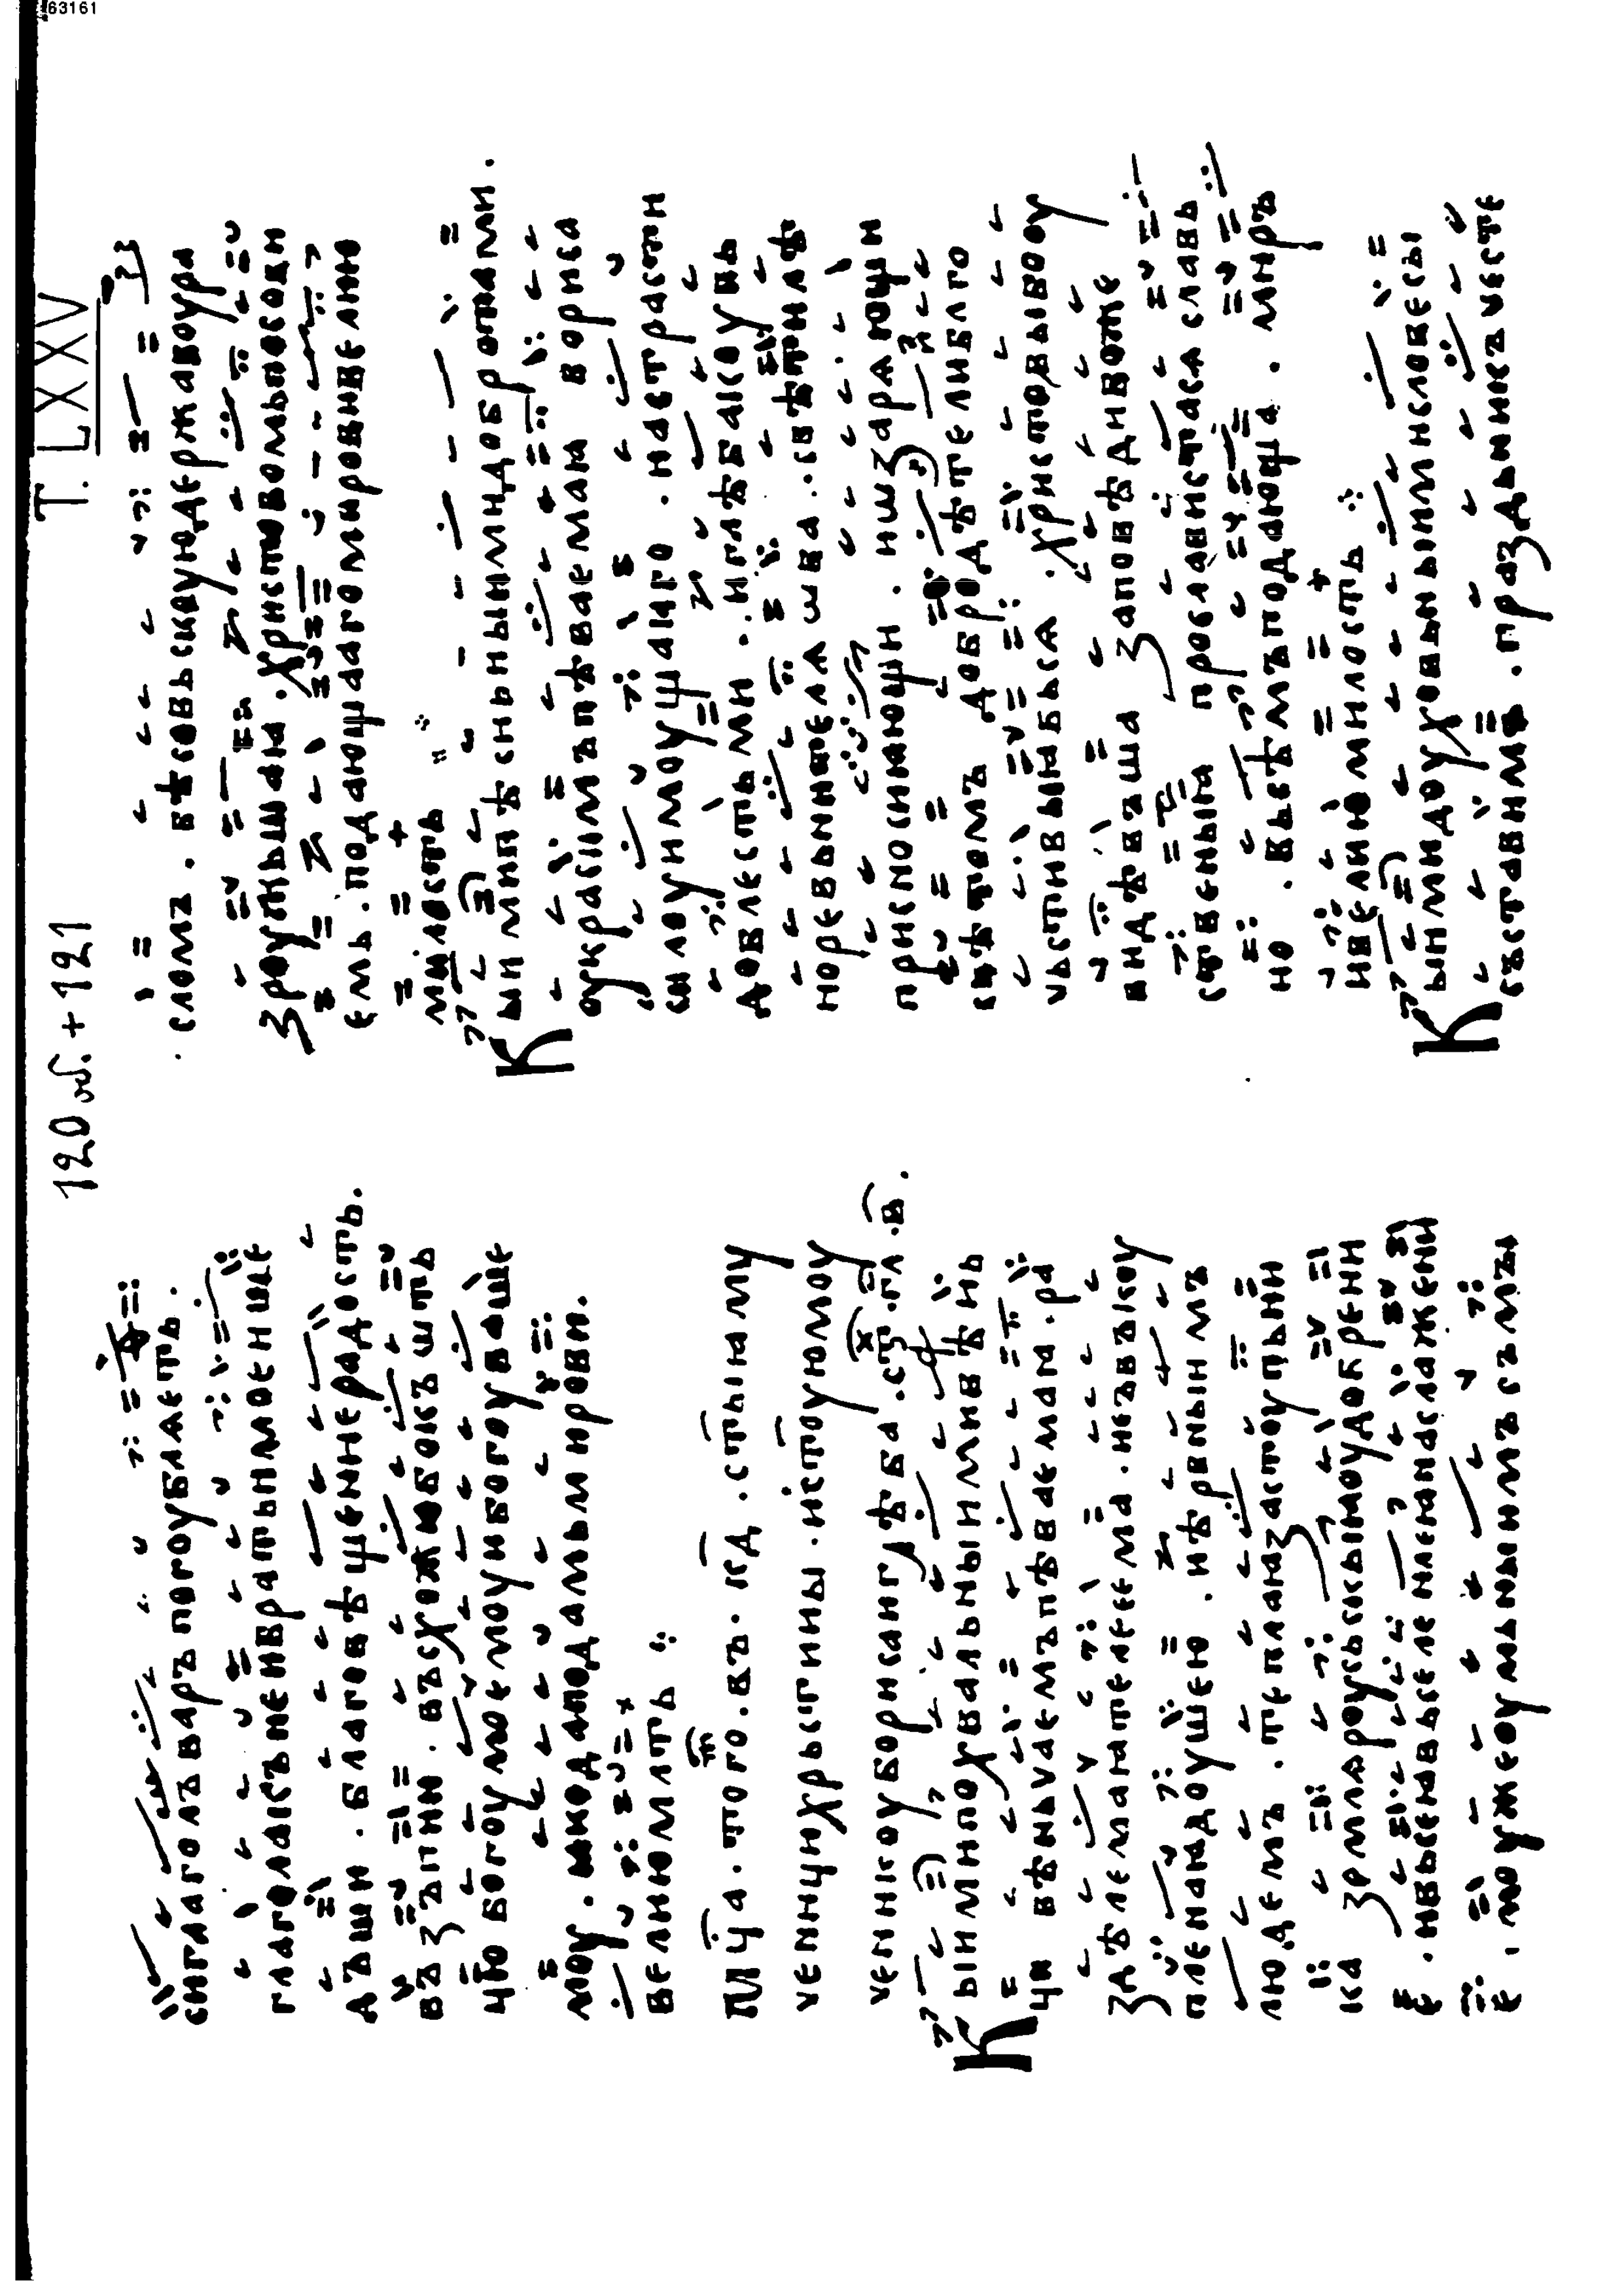 63161
T. LXXV
120 об. + 121
сиглаголъваръпогоублꙗеть.
глаголакъневратьнимоенше
дъши. благовѣщениерадость.
възъпии. въсхожюбокъшть
цю богоумоемоуибогоуваше
моу. ꙗкодаподамьмирови.
велиюмлть
мца. того. въ. кд. стыıаму
ченицюхрьстины. истоуюмоу
ченикоуборисаиглѣба. ст. гл. в.
Кыимипохвальныимивѣнь
ци вѣньчаемъпѣваемаıа. ра
здѣлемаıателесма. несъвъкоу
пленаıадоушею. иѣрныимъ
людемъ. теплаıазастоупьни
ка землароусьскыıаоудобрени
е. ивьсеıавъселенаıанаслажени
е. моужеоумьныимъсъмы
сломь. бѣсовьскоуюдержавоура
зроушьшаıа. Христовомьпособи
емь. подающагомировивелию
милость
Кыимипѣсньныимидобротами.
оукрасимъпѣваемаıа бориса
силоуимоущаıаго. настрасти
доблестьми. иглѣбаксоупь
норевьнителѧ ѡва. свѣтилѣ
присносиıающи. иизараıющи
свѣтомь добродѣтелиблаго
чьстивыıабъса. Христовывооу
видѣвъша заповѣдибоже
ствьныıа прославистасѧславь
но. вьсѣмъподающа. миръ
ивелиюмилость
Кыимидоуховьныимисловесы
съставимъ. празდьникъчьсте